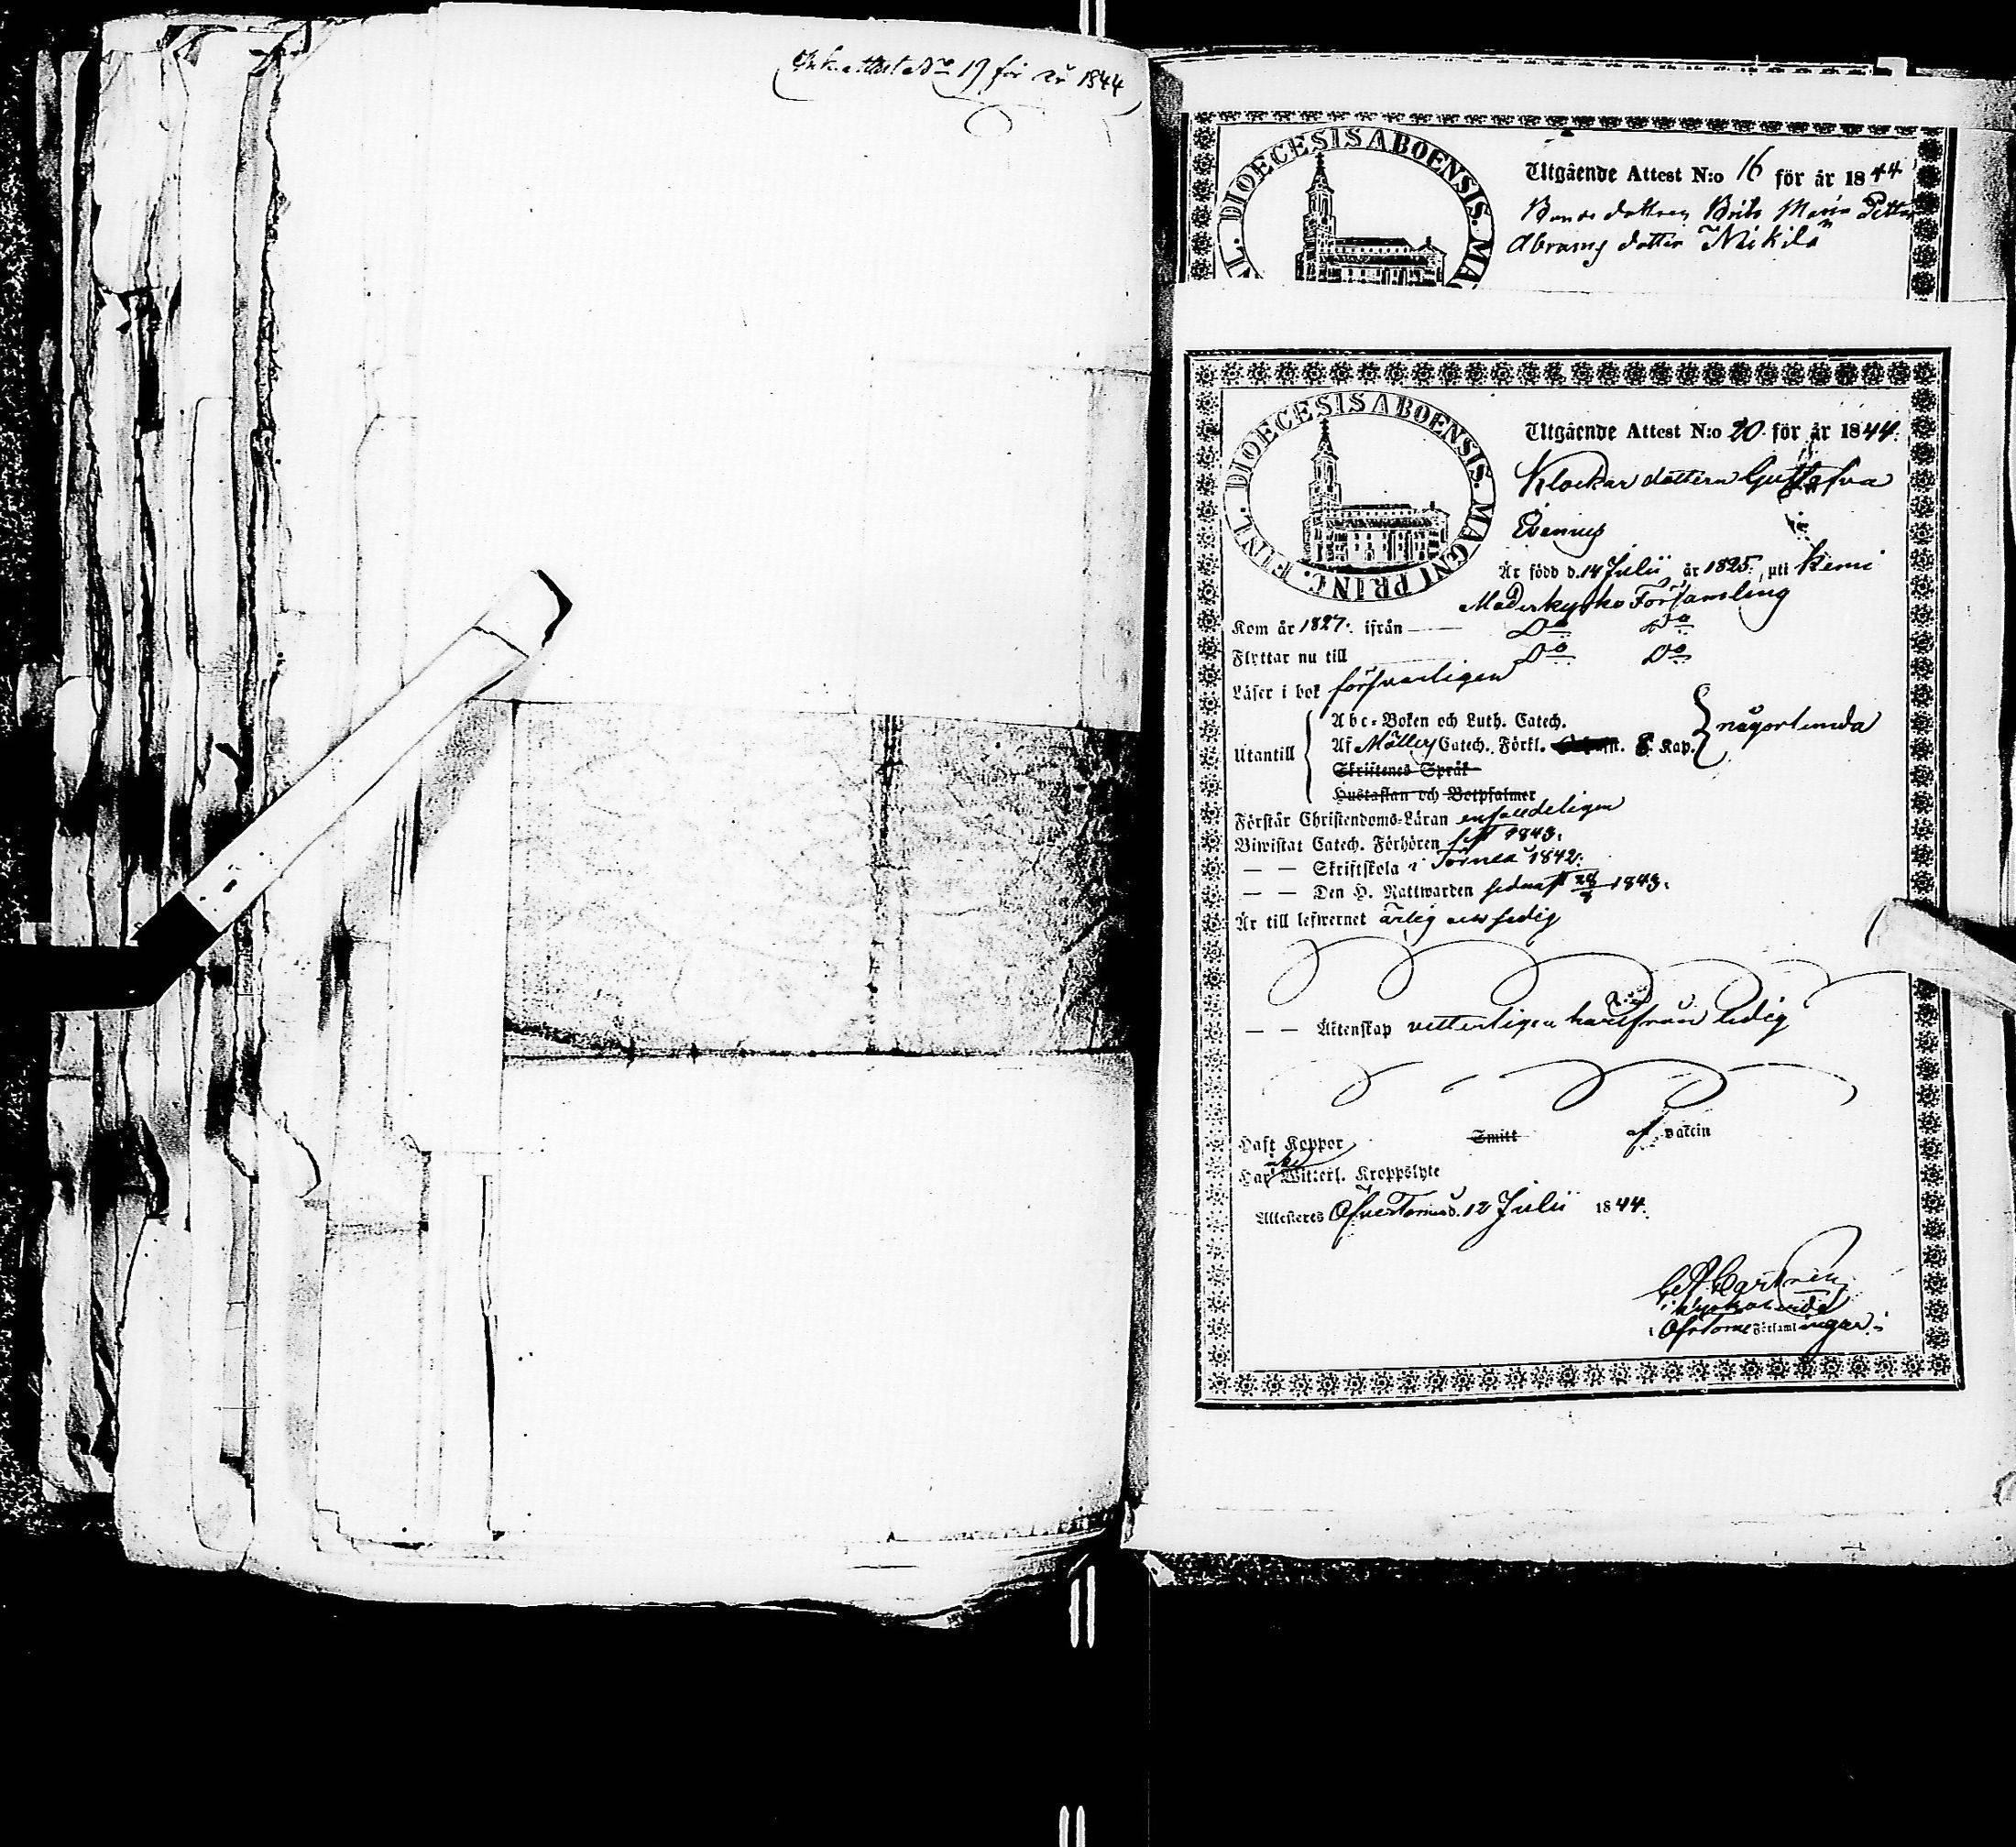 Ink. attest No 19 för år 1844
DIOECESIS ABOENSIS. MA
Utgående Attest N:o 16 för år 1844
Bonde dottren Brita Maria Petter
Abrams dotter Nikilä
DIOECESIS ABOENSIS. MAGNI PRINC. FINL.
Utgående Attest N:o 20. för år 1844.
Klockar dottern Gustafva
Esenius
Är född d. 14 Julii år 1825., uti Kemi
Moderkyrko Församling
Kom år 1827. ifrån — Do Do
Flyttar nu till — Do Do
Läser i bok försvarligen
Utantill
Abc-Boken och Luth. Catech.
Af Möllers Catech. Förkl. Kap. någorlunda
Skriftenes Språk
Hustaflan och Botpsalmer
Förstår Christendoms-Läran enfaldeligen
Biwistat Catech. Förhören sist 1843.
— — Skriftskola i Torneå 1842.
— — Den H. Nattwarden sednast 1843.
Är till lefwernet ärlig och sedig
— — Äktenskap vetterligen härifrån ledig
Haft Koppor Smitt af vaccin
Har icke Witterl. Kroppslyte
Attesteras ÖfverTorneå d. 12 Julii 1844.
i ÖfrTorne Församlingar.